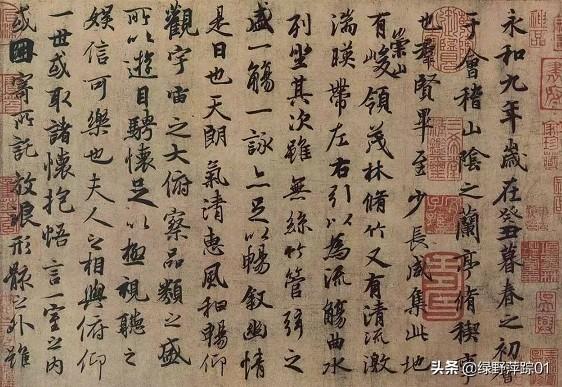 永和九年歲在癸丑暮春之初會
于會稽山陰之蘭亭脩稧事
也羣賢畢至少長咸集此地
有崇山峻領茂林脩竹又有清流激
湍暎帶左右引以為流觴曲水
列坐其次雖無絲竹管弦之
盛一觴一詠亦足以暢敘幽情
是日也天朗氣清惠風和暢仰
觀宇宙之大俯察品類之盛
所以遊目騁懷足以極視聽之
娛信可樂也夫人之相與俯仰
一世或取諸懷抱悟言一室之內
或因寄所託放浪形骸之外雖
头条 @绿野萍踪01